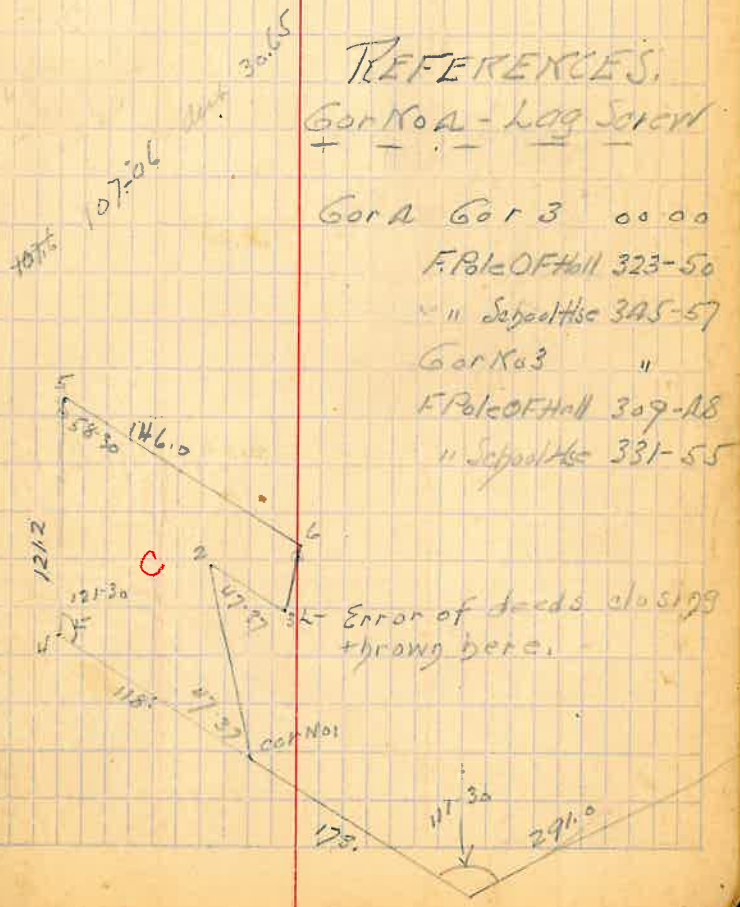 30.65
107-06
REFERENCES.
Cor No 4 - Lag Screw
Cor 4 Cor 3 00 00
F. Pole OF Hall 323-50
" School Hse 345-57
Cor No 3 "
F Pole OF Hall 309-48
" School Hse 331-55
5
58-30 146.0
6
121.2
C
2
121-30
47-27
3
Error of deeds closing
thrown here.
4
118.
47-37
cor No 1
117-30
291.0
173.